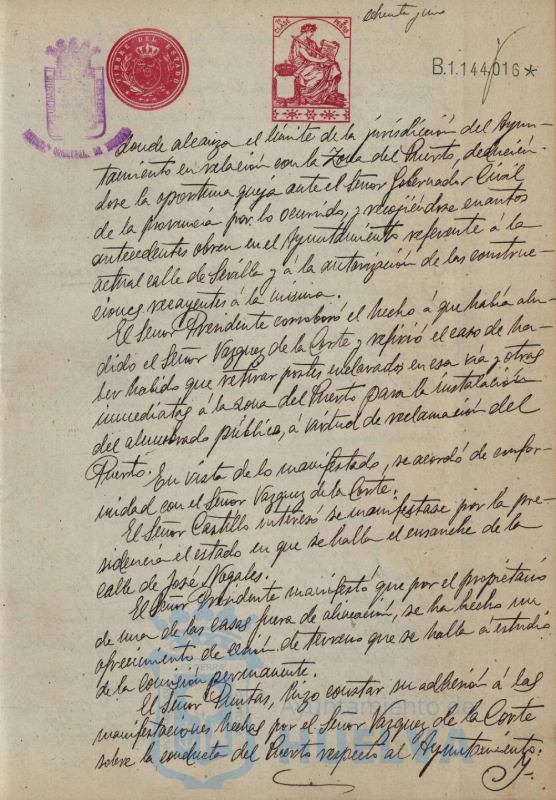 ochenta y uno
TIMBRE DEL ESTADO
CLASE
B.1.144,016*
donde alcanza el límite de la jurisdicción del Ayun-
tamiento en relación con la Zona del Puerto, deducien-
dose la oportuna queja ante el Señor Gobernador Civil
de la provincia por lo ocurrido, y recojiéndose cuantos
antecedentes obren en el Ayuntamiento referente á la
actual calle de Sevilla y á la autorización de las construc-
ciones recayentes á la misma.
El Señor Presidente corroboró el hecho á que había alu-
dido el Señor Vazquez de la Corte y refirió el caso de ha-
ber habido que retirar postes enclavados en esa vía y otras
inmediatas á la zona del Puerto para la instalación
del alumbrado público, á virtud de reclamación del
Puerto. En vista de lo manifestado, se acordó de confor-
midad con el Señor Vazquez de la Corte.
El Señor Castillo interesó se manifestase por la pre-
sidencia el estado en que se halla el ensanche de la
calle de José Nogales.
El Señor Presidente manifestó que por el propietario
de una de las casas fuera de alineación, se ha hecho un
ofrecimiento de cesión de terreno que se halla á estudio
de la comisión permanente.
El Señor Puntas, hizo constar su adhesión á las
manifestaciones hechas por el Señor Vazquez de la Corte
sobre la conducta del Puerto respecto al Ayuntamiento.
Ayuntamiento de
HUELVA